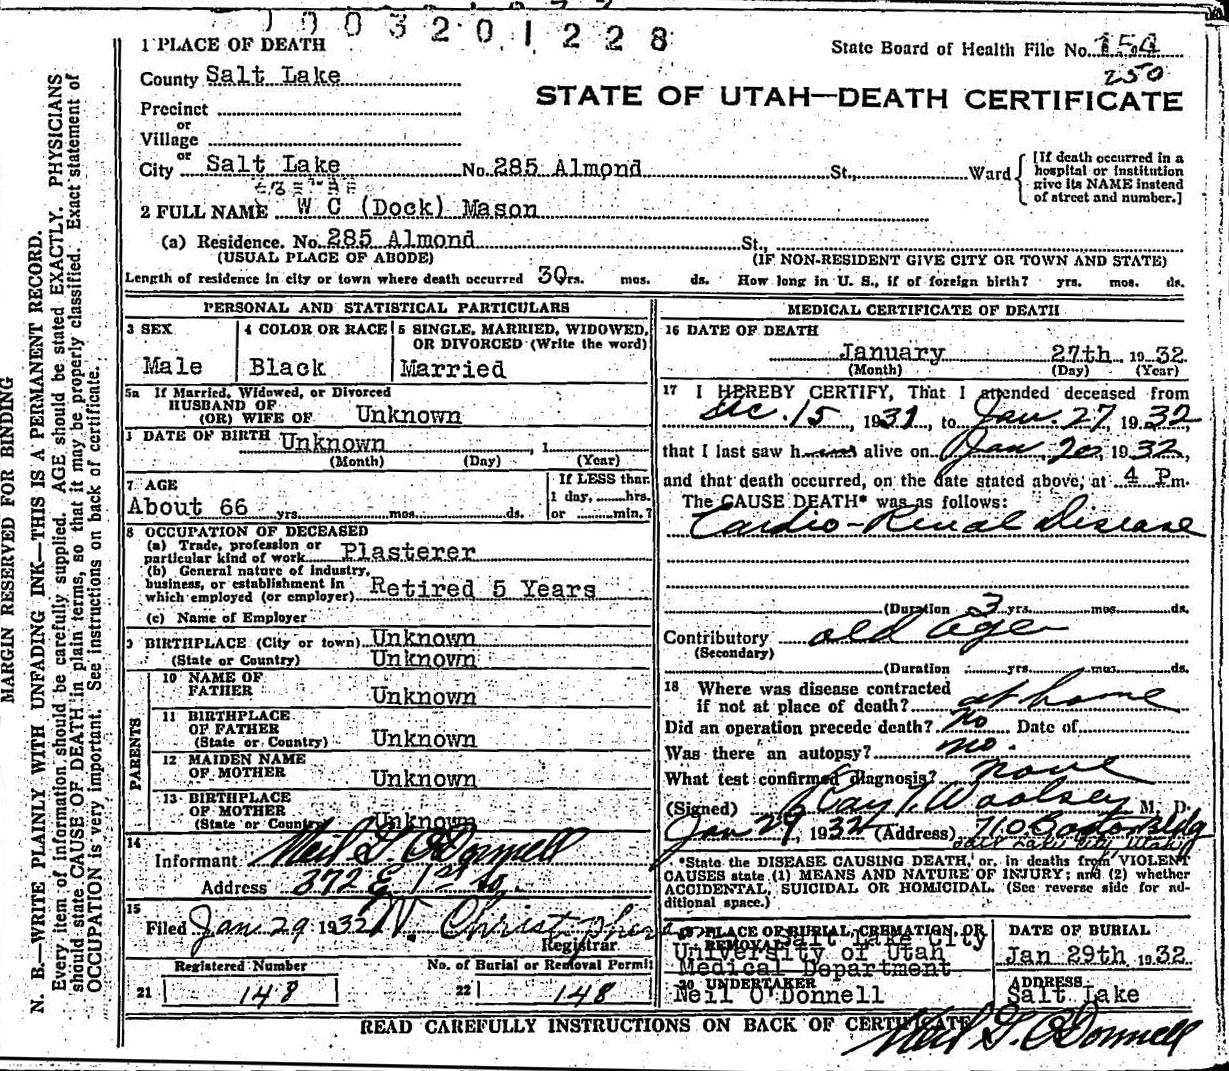 1003201228
1 PLACE OF DEATH
State Board of Health File No. 154
250
County Salt Lake
STATE OF UTAH—DEATH CERTIFICATE
Precinct
or
Village
or
City Salt Lake No. 285 Almond St., Ward
[If death occurred in a
hospital or institution
give its NAME instead
of street and number.]
2 FULL NAME W C (Dock) Mason
(a) Residence. No. 285 Almond St.,
(USUAL PLACE OF ABODE) (IF NON-RESIDENT GIVE CITY OR TOWN AND STATE)
Length of residence in city or town where death occurred 30 yrs. mos. ds. How long in U. S., if of foreign birth? yrs. mos. ds.
PERSONAL AND STATISTICAL PARTICULARS
3 SEX
Male
4 COLOR OR RACE
Black
5 SINGLE, MARRIED, WIDOWED,
OR DIVORCED (Write the word)
Married
5a If Married, Widowed, or Divorced
HUSBAND OF
(OR) WIFE OF Unknown
DATE OF BIRTH Unknown , 1
(Month) (Day) (Year)
7 AGE
About 66 yrs. mos. ds.
If LESS than
1 day, hrs.
or min.?
8 OCCUPATION OF DECEASED
(a) Trade, profession or
particular kind of work Plasterer
(b) General nature of industry,
business, or establishment in
which employed (or employer) Retired 5 Years
(c) Name of Employer
9 BIRTHPLACE (City or town) Unknown
(State or Country) Unknown
PARENTS
10 NAME OF
FATHER Unknown
11 BIRTHPLACE
OF FATHER
(State or Country) Unknown
12 MAIDEN NAME
OF MOTHER Unknown
13 BIRTHPLACE
OF MOTHER
(State or Country Unknown
14
Informant Neil G. O'Donnell
Address 372 E 1st So.
15
Filed Jan 29 1932 W. Christopherson
Registrar
Registered Number No. of Burial or Removal Permit
21 148 22 148
MEDICAL CERTIFICATE OF DEATH
16 DATE OF DEATH
January 27th 1932.
(Month) (Day) (Year)
17 I HEREBY CERTIFY, That I attended deceased from
Dec. 15, 1931, to Jan. 27, 1932
that I last saw h alive on Jan 20, 1932,
and that death occurred, on the date stated above, at 4 P.m.
The CAUSE DEATH* was as follows:
Cardio-Renal Disease
(Duration 3 yrs. mos. ds.
Contributory old age
(Secondary)
(Duration yrs. mos. ds.
18 Where was disease contracted
if not at place of death? at home
Did an operation precede death? No Date of
Was there an autopsy? no.
What test confirmed diagnosis? none
(Signed) Woolsey M. D.
Jan 29, 1932 (Address) 710 Boston Bldg
Salt Lake City Utah
*State the DISEASE CAUSING DEATH, or, in deaths from VIOLENT
CAUSES state (1) MEANS AND NATURE OF INJURY; and (2) whether
ACCIDENTAL, SUICIDAL OR HOMICIDAL. (See reverse side for ad-
ditional space.)
19 PLACE OF BURIAL, CREMATION, OR
REMOVAL Salt Lake City
University of Utah
Medical Department
DATE OF BURIAL
Jan 29th 1932
20 UNDERTAKER
Neil O'Donnell
ADDRESS
Salt Lake
READ CAREFULLY INSTRUCTIONS ON BACK OF CERTIFICATE
Neil G. O'Donnell
MARGIN RESERVED FOR BINDING
N. B.—WRITE PLAINLY WITH UNFADING INK—THIS IS A PERMANENT RECORD.
Every item of information should be carefully supplied. AGE should be stated EXACTLY. PHYSICIANS
should state CAUSE OF DEATH in plain terms, so that it may be properly classified. Exact statement of
OCCUPATION is very important. See instructions on back of certificate.